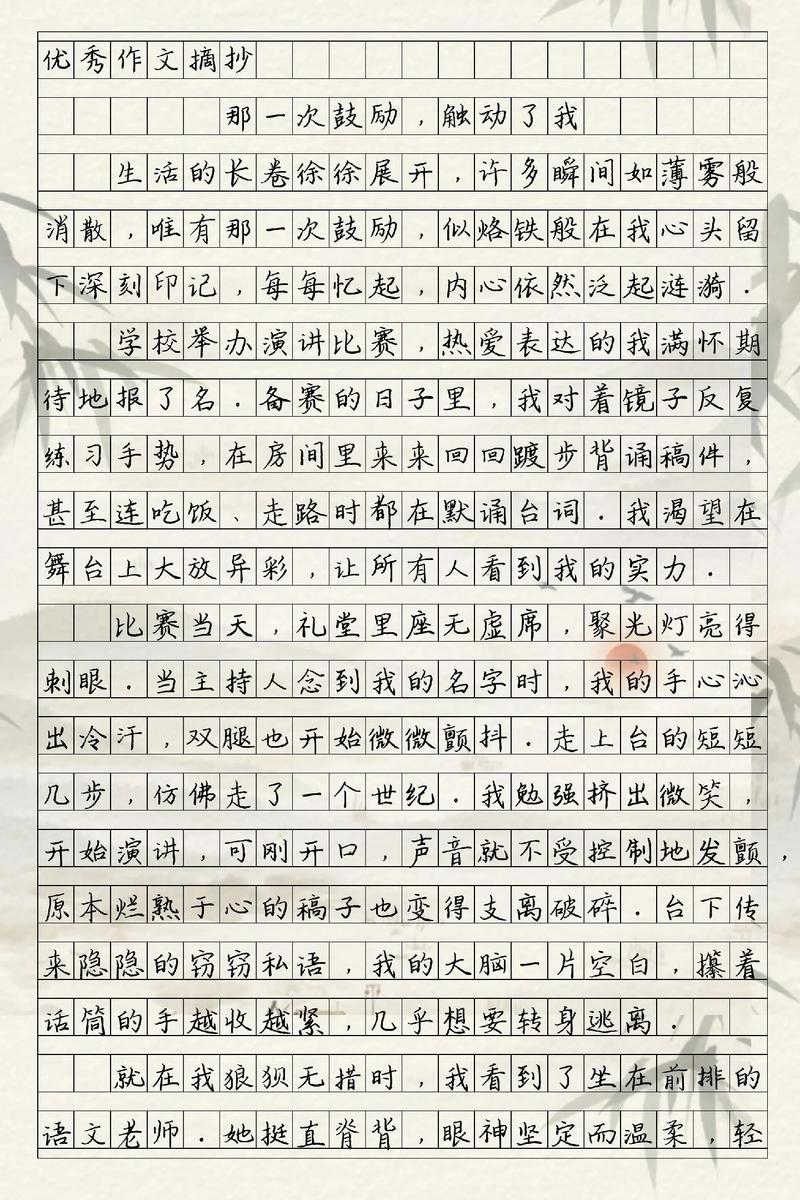 优秀作文摘抄
那一次鼓励，触动了我
生活的长卷徐徐展开，许多瞬间如薄雾般
消散，唯有那一次鼓励，似烙铁般在我心头留
下深刻印记，每每忆起，内心依然泛起涟漪．
学校举办演讲比赛，热爱表达的我满怀期
待地报了名．备赛的日子里，我对着镜子反复
练习手势，在房间里来来回回踱步背诵稿件，
甚至连吃饭、走路时都在默诵台词．我渴望在
舞台上大放异彩，让所有人看到我的实力．
比赛当天，礼堂里座无虚席，聚光灯亮得
刺眼．当主持人念到我的名字时，我的手心沁
出冷汗，双腿也开始微微颤抖．走上台的短短
几步，仿佛走了一个世纪．我勉强挤出微笑，
开始演讲，可刚开口，声音就不受控制地发颤，
原本烂熟于心的稿子也变得支离破碎．台下传
来隐隐的窃窃私语，我的大脑一片空白，攥着
话筒的手越收越紧，几乎想要转身逃离．
就在我狼狈无措时，我看到了坐在前排的
语文老师．她挺直脊背，眼神坚定而温柔，轻